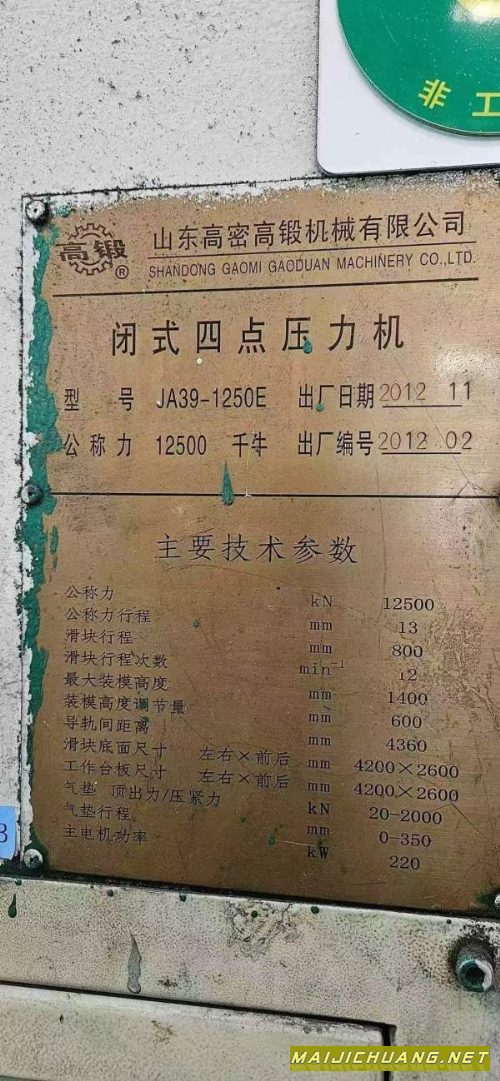 非工
高锻
®
山东高密高锻机械有限公司
SHANDONG GAOMI GAODUAN MACHINERY CO.,LTD.
闭式四点压力机
型 号 JA39-1250E 出厂日期 2012 11
公称力 12500 千牛 出厂编号 2012 02
主要技术参数
公称力 kN 12500
公称力行程 mm 13
滑块行程 mm 800
滑块行程次数 min⁻¹ 12
最大装模高度 mm 1400
装模高度调节量 mm 600
导轨间距离 mm 4360
滑块底面尺寸 左右×前后 mm 4200×2600
工作台板尺寸 左右×前后 mm 4200×2600
气垫 顶出力/压紧力 kN 20-2000
气垫行程 mm 0-350
主电机功率 kW 220
MAIJICHUANG.NET